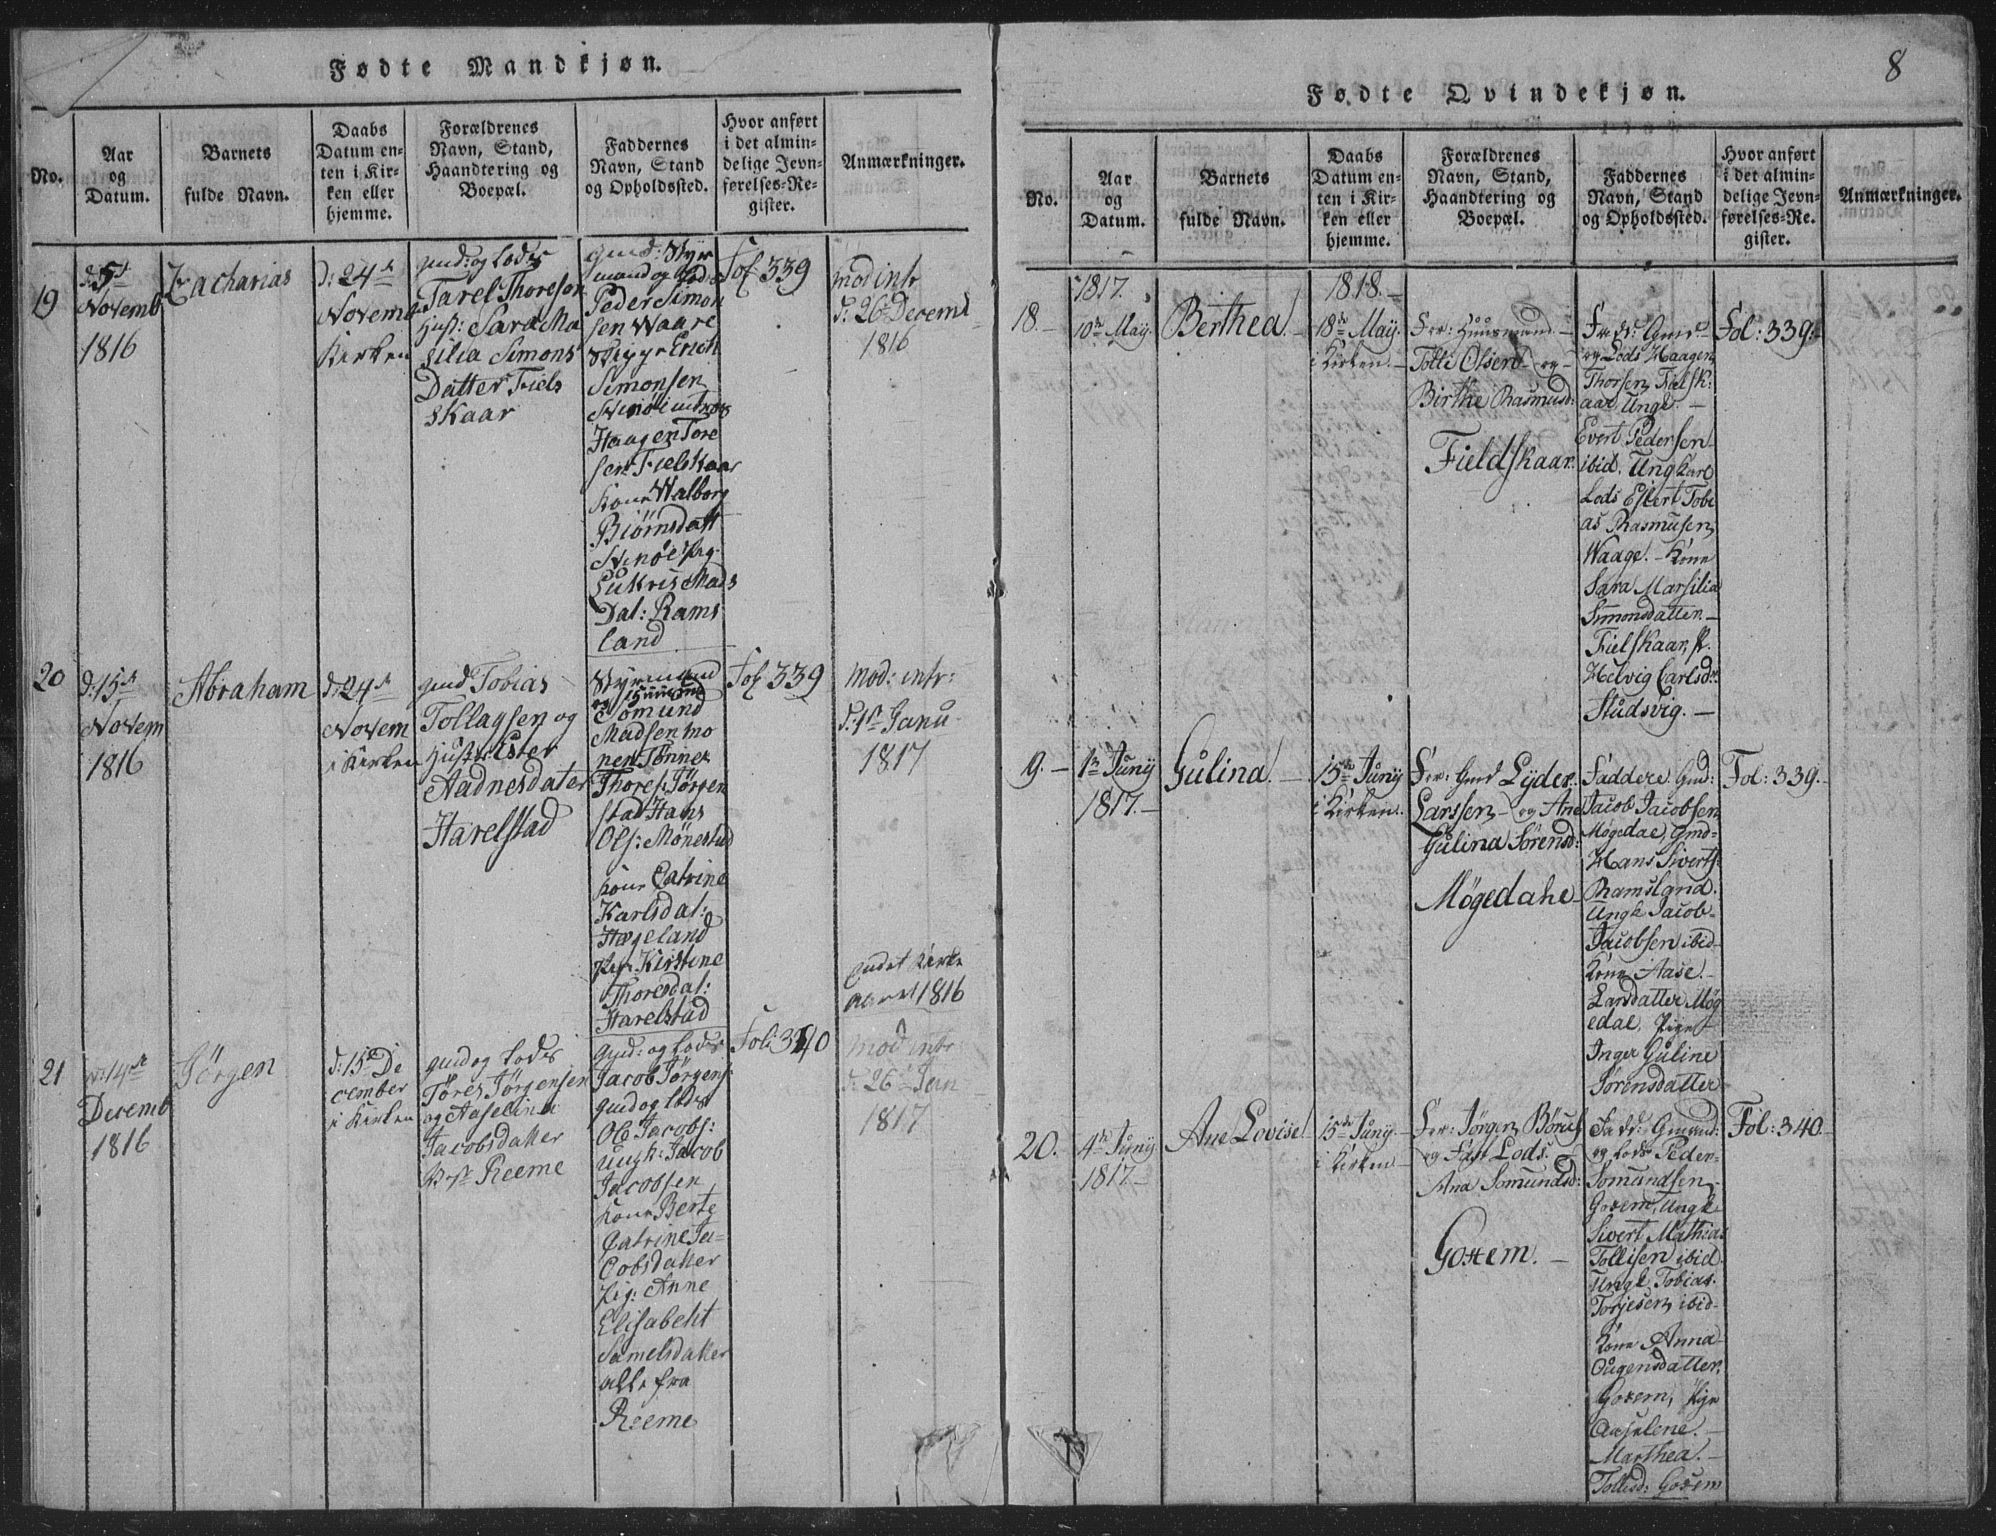 Fødte Mandkjøn.
No.
Aar
og
Datum.
Barnets
fulde Navn.
Daabs
Datum en-
ten i Kir-
ken eller
hjemme.
Forældrenes
Navn, Stand,
Haandtering og
Boepæl.
Faddernes
Navn, Stand
og Opholdssted.
Hvor anført
i det almin-
delige Jevn-
førelses-Re-
gister.
Anmærkninger.
19
d: 5t
Novemb
1816
Zacharias
d: 24t
Novemb
Kirken
gmd: og Lods
Tarel Thoreson
Hust: Sara Ma
silia Simons
Datter Fiels
skaar
gmd: Styr
mand og Lods
Peder Simon
sen Waare
Skippr Erich
Simonsen
Svinøe
Haagen Tore
sen Fielskaar
Kone Walborg
Biörnsdatt
Svinøe Pig.
Mads
Dat: Rams
land
Fol 339
mod intr
d: 26 Decemb
1816
20
d: 15t
Novem
1816
Abraham
d: 24t
Novem
i Kirken
gmd Tobias
Tollagsen og
Hustr: Ester
Aadnesdater
Harelstad
Styrmand
Somund
Madsen
Thores: Törgen
stad Hans
Ols: Mönestad
Kone Catrine
Karlsdat:
Hægeland
Pig: Kirstine
Thoresdat:
Harelstad
Fol 339
mod: intr:
d: 1t Janu
1817
endet Kirke
Aaret 1816
21
14de
Decemb
1816
Jörgen
d: 15t De
cember
i Kirken
gmd og Lods
Tores Jörgensen
og Aaselina
Jacobsdatter
Reeme
gmd: og Lods
Jacob Jörgens:
gmd og Lods
Ole Jacobs:
Ungk: Jacob
Jacobsen
Kone Berte
Catrine Ja-
cobsdatter
Pig: Anne
Elisabeht
Samelsdatter
alle fra
Reeme
Fol: 340
mod intr
d: 26 Jan
1817
8
Fødte Qvindekjøn.
No.
Aar
og
Datum.
Barnets
fulde Navn.
Daabs
Datum en-
ten i Kir-
ken eller
hjemme.
Forældrenes
Navn, Stand,
Haandtering og
Boepæl.
Faddernes
Navn, Stand
og Opholdssted.
Hvor anført
i det almin-
delige Jevn-
førelses-Re-
gister.
Anmærkninger.
18.
1817.
10de May.
Berthea.
1818.
18de May.
i Kirken.
For: Huusmand
Tolle Olsen og
Birthe Rasmusd:
Fieldskaar.
Fadr: Gmd
og Lods Haagen
Thorsen Fielsk:
aar Ungk.
Evert Pedersen
ibid. Ungkarl
Lods Efsert Tobi
as Rasmusen
Waage. Kone
Sara Marsilia
Simonsdatter.
Fielskaar, P.
Helvig Carlsdr.
Studsvig.
Fol: 339.
9.
1te Juny
1817.
Gulina.
15de Juny
i Kirken.
For: Gmd Lyder
Larssen og Ane
Gulina Sörensd:
Møgedahe
Faddere Gmd:
Jacob Jacobsen
Møgedae, Gmd
Hans Siverts:
Ramsland.
Ungk Jacob
Jacobsen ibid
Kone Aase
Larsdatter Møg
edal, Pige
Inger Guline
Sörensdatter
Fol: 339.
20.
4de Juny
1817
Ane Lovise
15de Juny
i Kirken
For: Jörgen Börues
og Fast Lods.
Ana Somundsd:
Gosem.
Fadr: Gmand:
og Lods Peder
Somundsen
Gosem, Ungk
Sivert Mathias
Tollisen ibid.
Ungk Tobias
Torjesen ibid
Kone Anna
Ougensdatter
Gosem, Pige
Aaselene.
Marthea.
Tollisd: Gosem
Fol: 340.